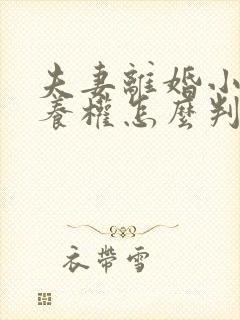 夫妻離婚小
養權怎麼判
衣帶雪